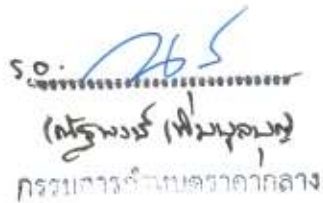 ร.อ.
(ณัฐพงษ์ เพิ่มพูลบุญ)
กรรมการกำหนดราคากลาง